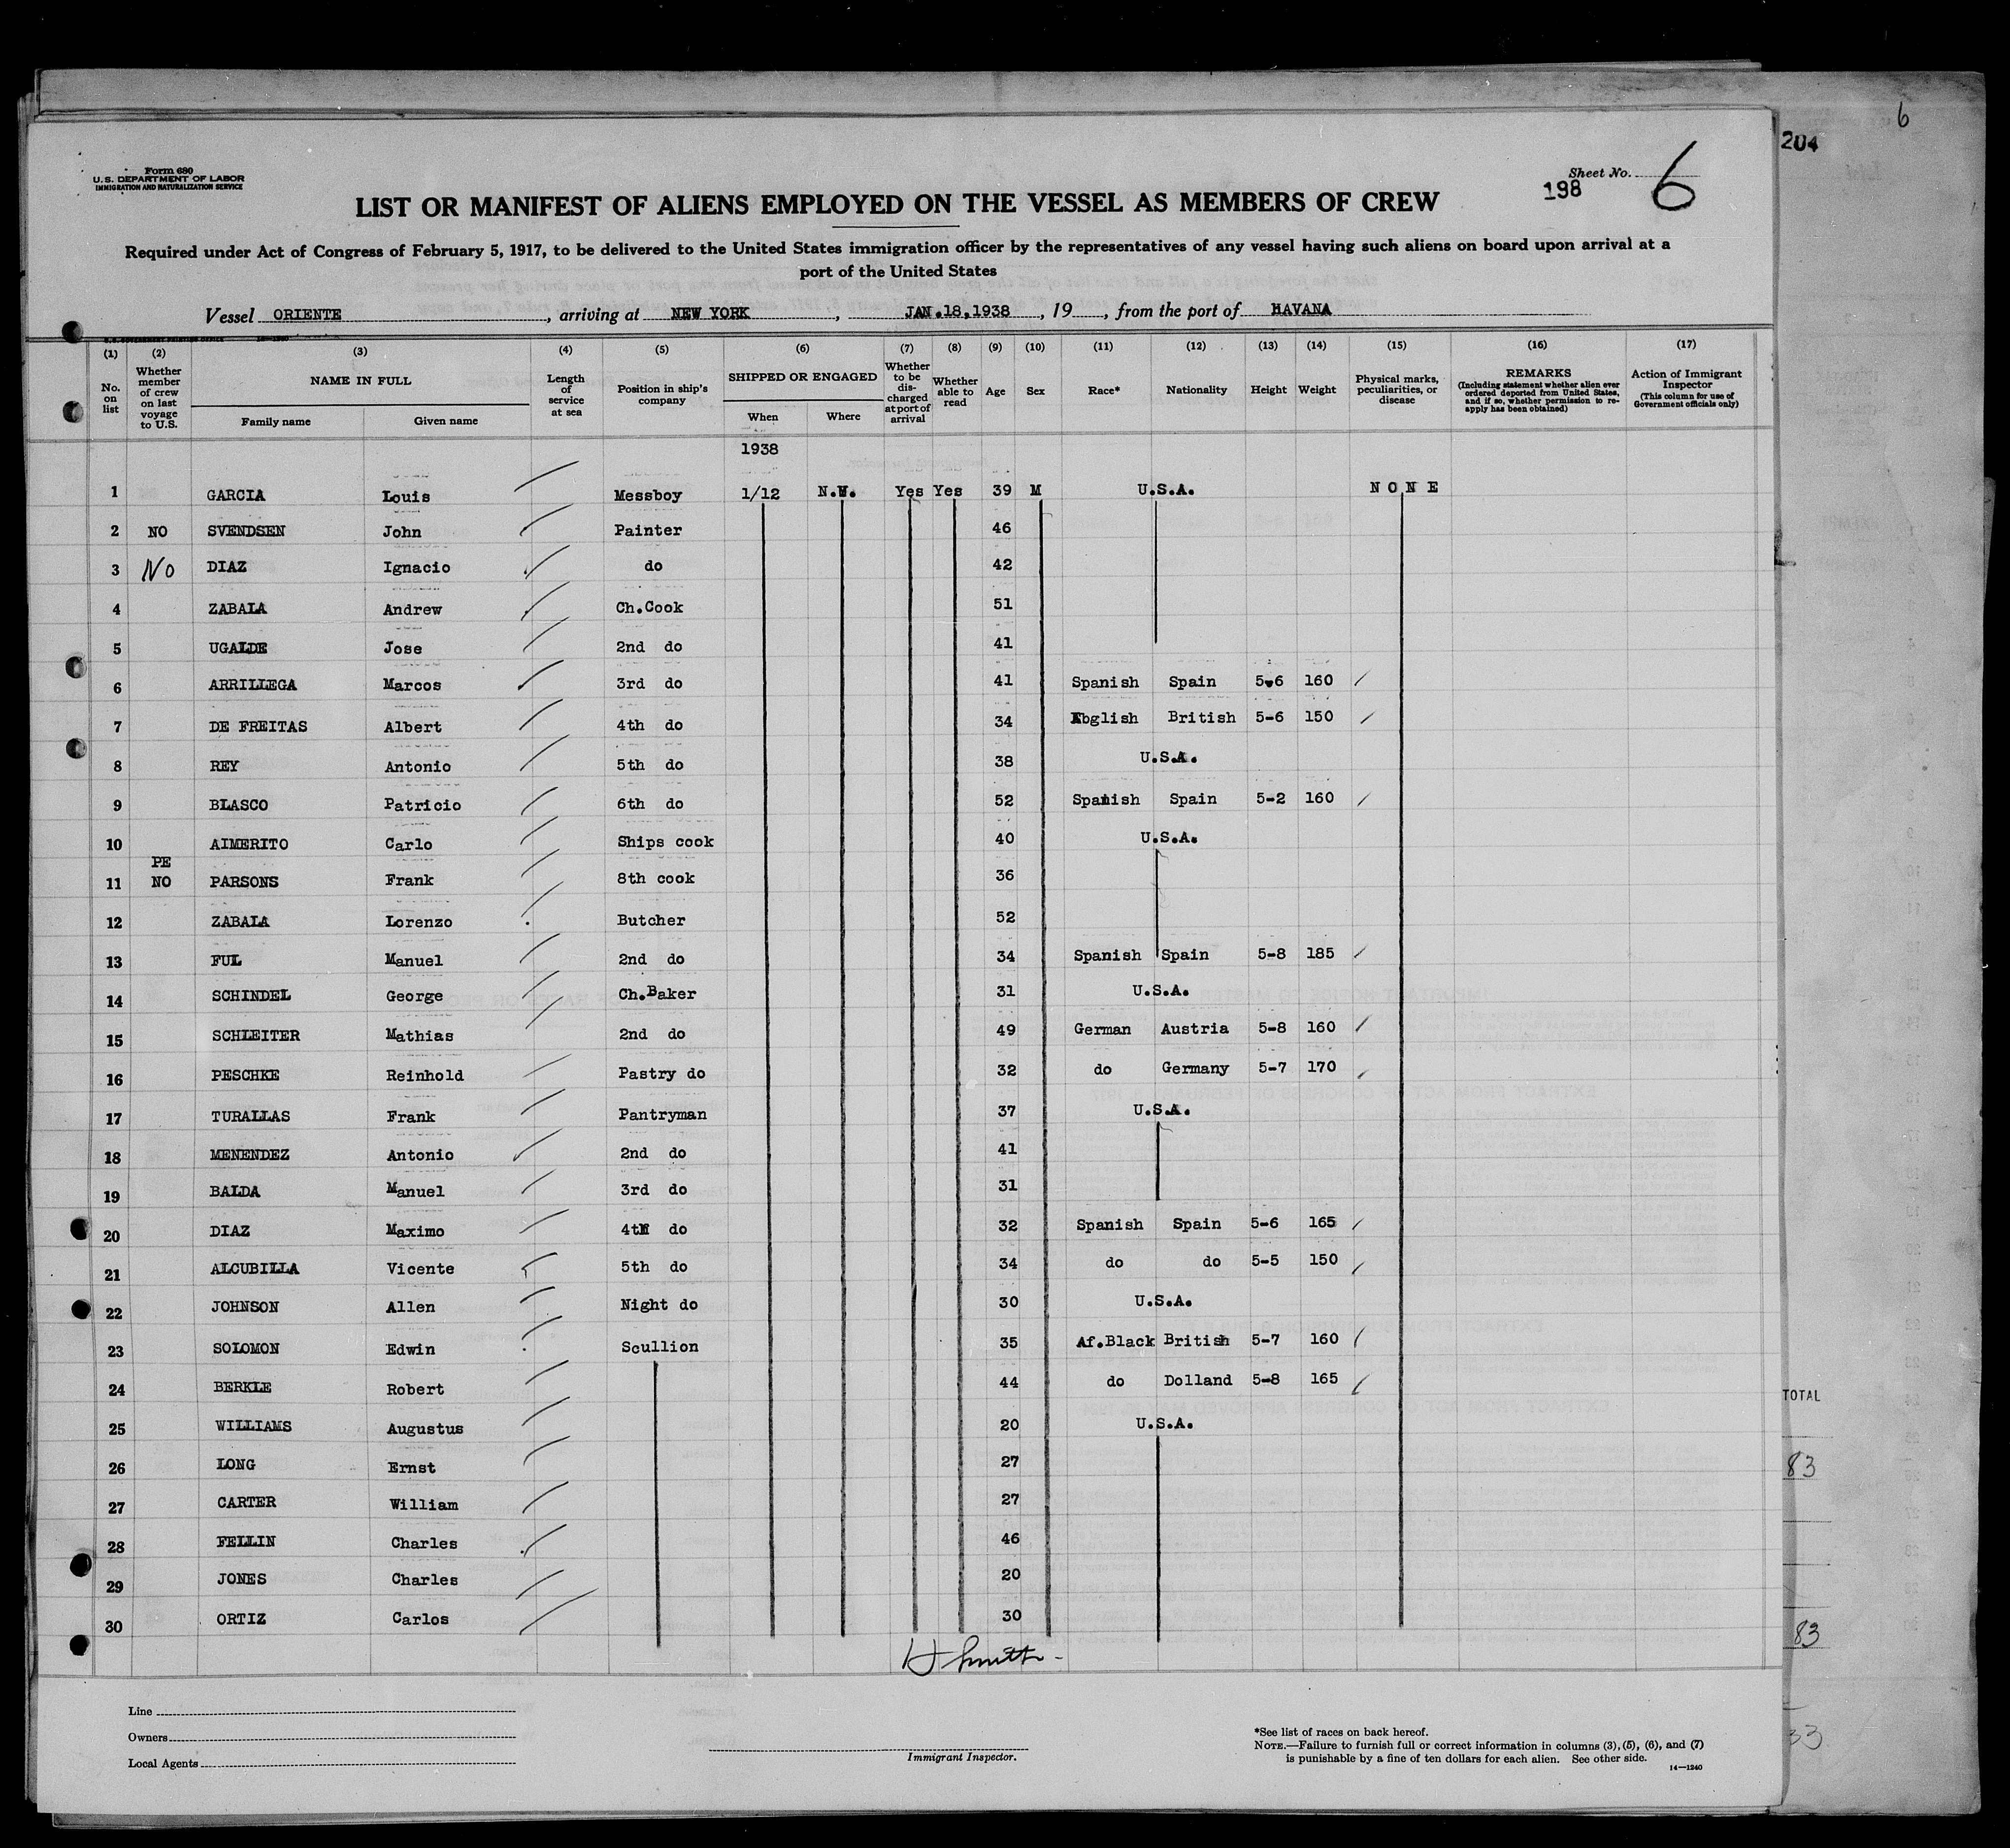 6
204
Form 680
U. S. DEPARTMENT OF LABOR
IMMIGRATION AND NATURALIZATION SERVICE
Sheet No. 6
198
LIST OR MANIFEST OF ALIENS EMPLOYED ON THE VESSEL AS MEMBERS OF CREW
Required under Act of Congress of February 5, 1917, to be delivered to the United States immigration officer by the representatives of any vessel having such aliens on board upon arrival at a
port of the United States
Vessel ORIENTE, arriving at NEW YORK, JAN.18,1938, 19, from the port of HAVANA
(1) (2) (3) (4) (5) (6) (7) (8) (9) (10) (11) (12) (13) (14) (15) (16) (17)
No. on list
Whether member of crew on last voyage to U.S.
NAME IN FULL
Family name Given name
Length of service at sea
Position in ship's company
SHIPPED OR ENGAGED
When Where
Whether to be discharged at port of arrival
Whether able to read
Age
Sex
Race*
Nationality
Height
Weight
Physical marks, peculiarities, or disease
REMARKS
(Including statement whether alien ever ordered deported from United States, and if so, whether permission to reapply has been obtained)
Action of Immigrant Inspector
(This column for use of Government officials only)
1938
1 GARCIA Louis Messboy 1/12 N.Y. Yes Yes 39 M U.S.A. N O N E
2 NO SVENDSEN John Painter 46
3 No DIAZ Ignacio do 42
4 ZABALA Andrew Ch.Cook 51
5 UGALDE Jose 2nd do 41
6 ARRILLEGA Marcos 3rd do 41 Spanish Spain 5-6 160
7 DE FREITAS Albert 4th do 34 Ebglish British 5-6 150
8 REY Antonio 5th do 38 U.S.A.
9 BLASCO Patricio 6th do 52 Spanish Spain 5-2 160
10 AIMERITO Carlo Ships cook 40 U.S.A.
PE
11 NO PARSONS Frank 8th cook 36
12 ZABALA Lorenzo Butcher 52
13 FUL Manuel 2nd do 34 Spanish Spain 5-8 185
14 SCHINDEL George Ch.Baker 31 U.S.A.
15 SCHLEITER Mathias 2nd do 49 German Austria 5-8 160
16 PESCHKE Reinhold Pastry do 32 do Germany 5-7 170
17 TURALLAS Frank Pantryman 37 U.S.A.
18 MENENDEZ Antonio 2nd do 41
19 BALDA Manuel 3rd do 31
20 DIAZ Maximo 4th do 32 Spanish Spain 5-6 165
21 ALCUBILLA Vicente 5th do 34 do do 5-5 150
22 JOHNSON Allen Night do 30 U.S.A.
23 SOLOMON Edwin Scullion 35 Af.Black British 5-7 160
24 BERKLE Robert 44 do Dolland 5-8 165
25 WILLIAMS Augustus 20 U.S.A.
26 LONG Ernst 27
27 CARTER William 27
28 FELLIN Charles 46
29 JONES Charles 20
30 ORTIZ Carlos 30
H Smith
TOTAL
83
83
33
Line
Owners
Local Agents
Immigrant Inspector.
*See list of races on back hereof.
NOTE.—Failure to furnish full or correct information in columns (3), (5), (6), and (7)
is punishable by a fine of ten dollars for each alien. See other side.
14—1240